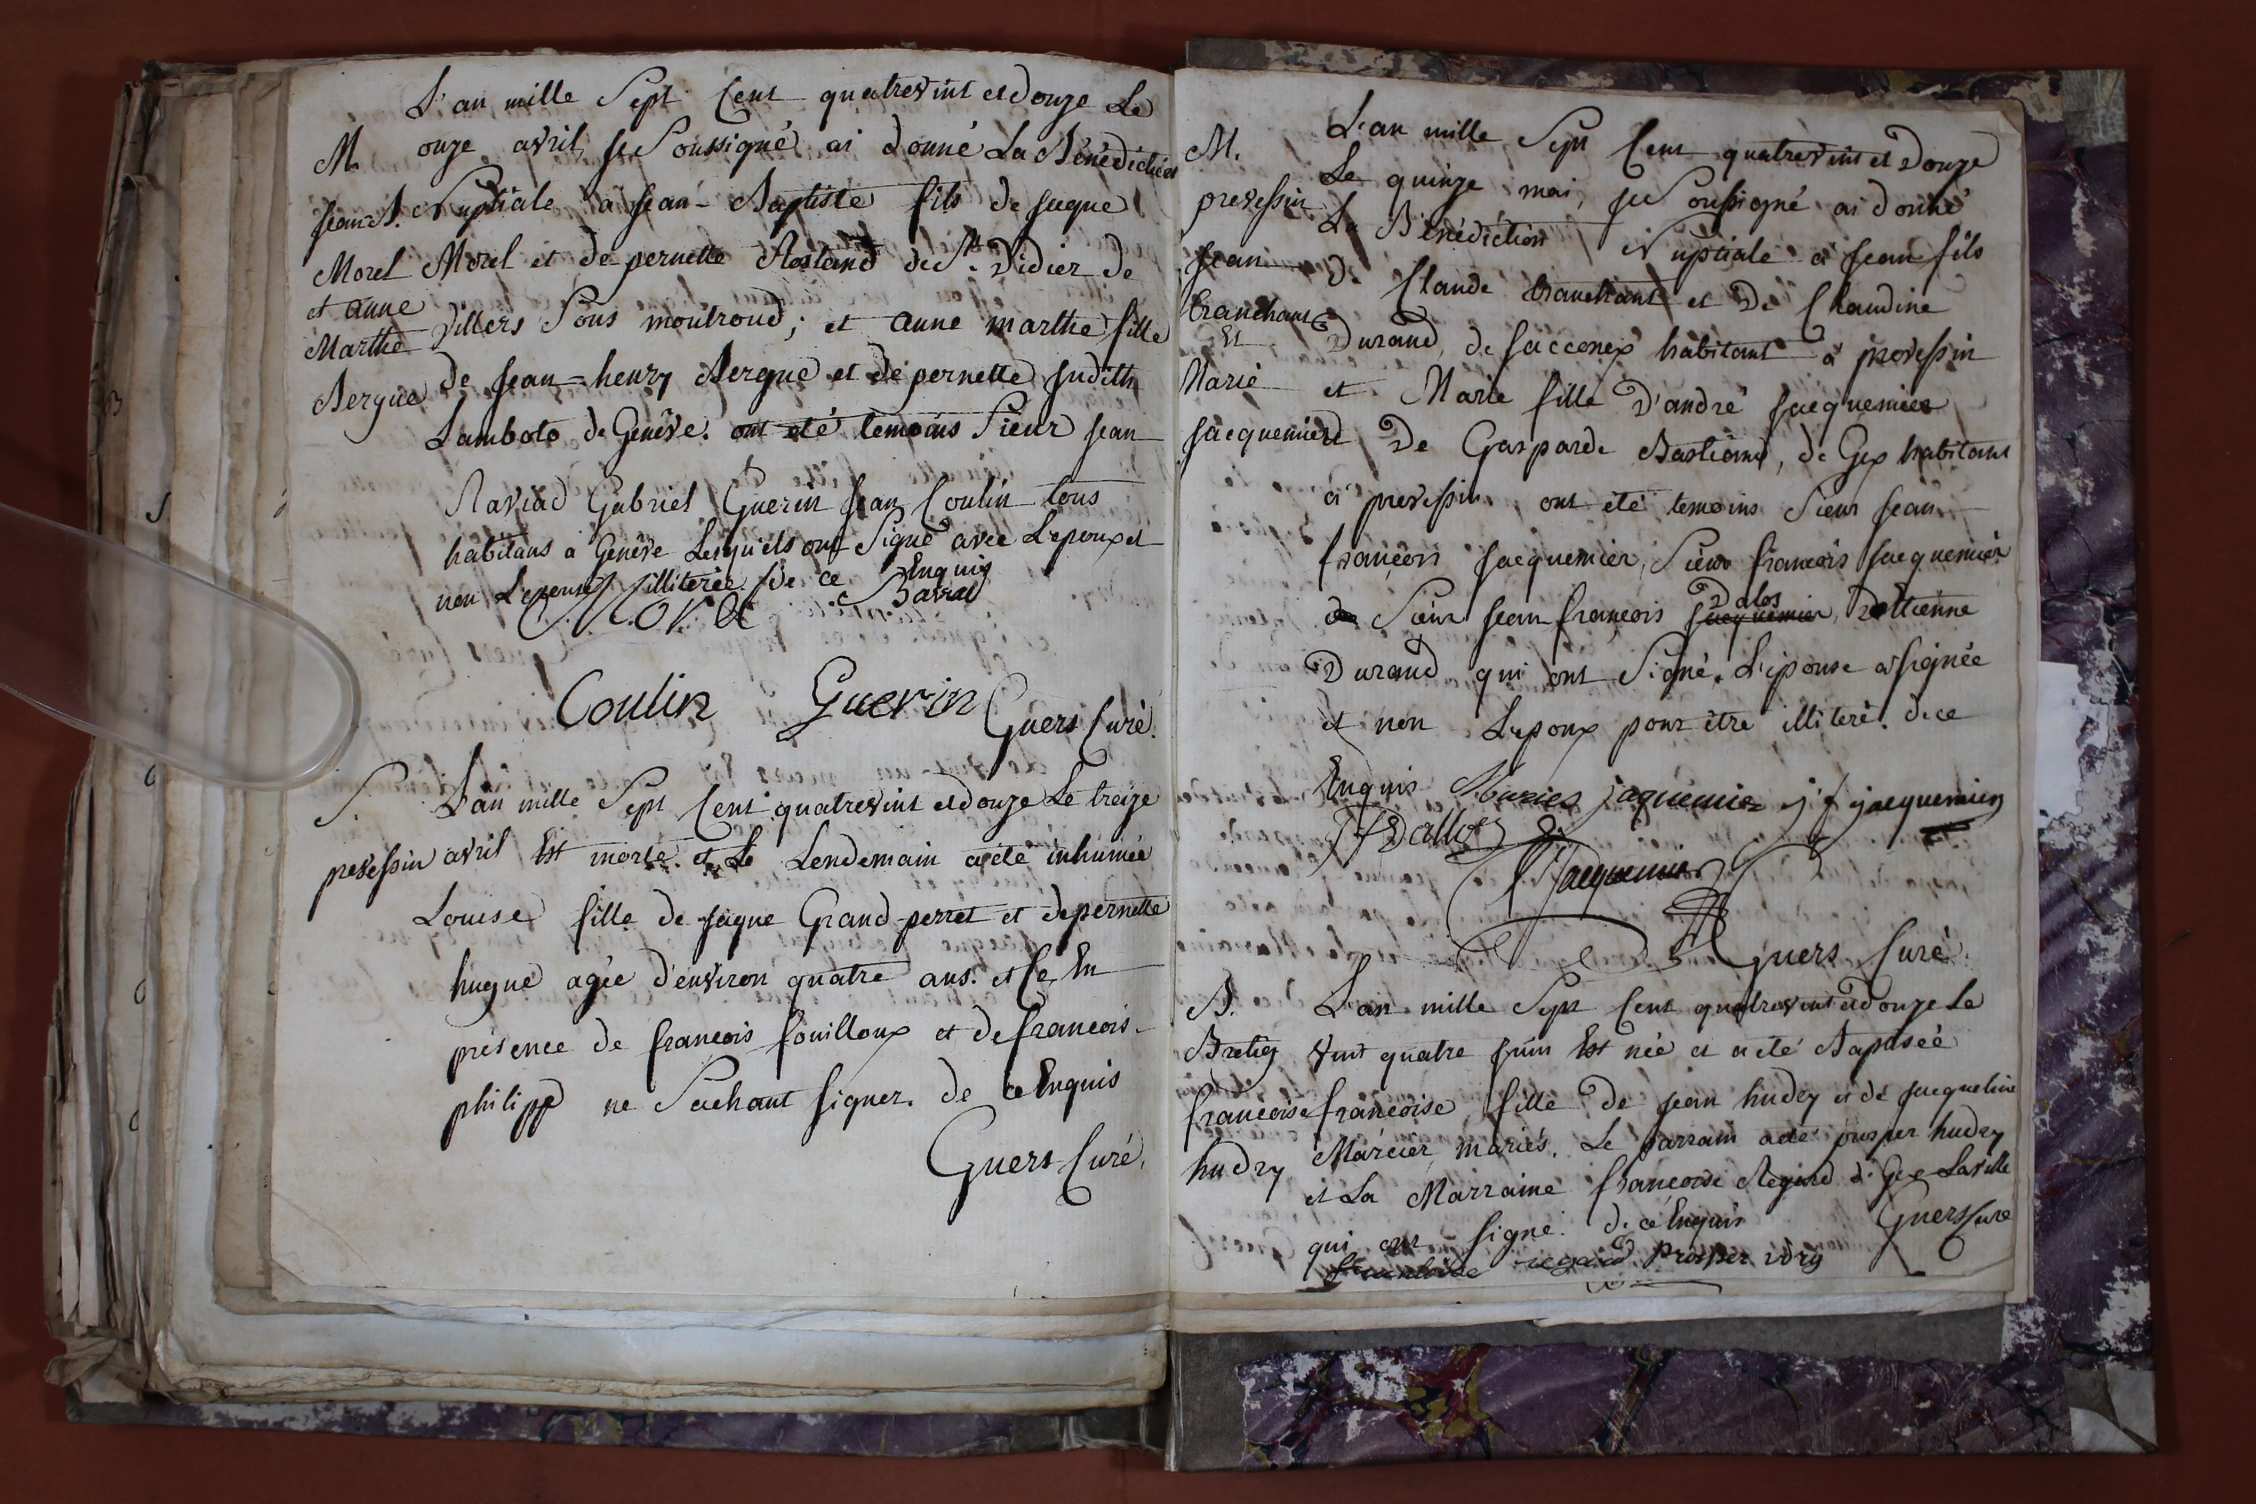 L'an mille Sept Cent quatrevint et douze Le
M. onze avril je Soussigné ai donné La Bénédiction
jean B. Nuptiale à jean-Baptiste fils de jaque
Morel Morel et de pernette Rostand de St. Didier de
et anne
Marthe Villers Sous montroud; et anne marthe fille
Bergue de jean-henry Bergue et de pernette judith
Lamboto de Genêve. ont été temoins Sieur jean
Raviad Gabriel Guerin jean Coulin tous
habitans a Genêve Lesquels ont Signé avec L'epoux et
non L'epouse illiterée de ce Enquis
Morel Raviad
Coulin Guerin Guers Curé.
S. L'an mille Sept Cent quatrevint et douze Le treize
prevessin avril Est morte et Le Lendemain a été inhumée
Louise fille de jaque Grand perret et de pernette
hugue agée d'environ quatre ans. et Ce En
présence de françois fouilloux et de françois
philippe ne Sachant signer. de ce Enquis
Guers Curé.
M. L'an mille Sept Cent quatrevint et Douze
prevessin Le quinze mai, je Soussigné ai donné
La Bénédiction Nuptiale à jean fils
jean D. Claude tranchant et De Claudine
tranchant Durand, de sacconex habitant à prevessin
Et
Marie et Marie fille D'andré jacquemier
jacquemier et De Gasparde Bastiand, de Gex habitant
à prevessin ont été temoins Sieur jean
françois jacquemier, Sieur françois jacquemier
Sieur jean françois jacquemier Dalos, Estienne
Durand qui ont Signé. L'épouse a signée
et non L'epoux pour être illiteré. de ce
Enquis Maries jaquemier j f jacquemier
J f Dallos
f Jacquemier
Guers Curé.
B. L'an mille Sept Cent quatrevint et Douze Le
Bretigy Vint quatre juin Est née et a été Baptisée
françoise françoise fille de jean hudry et de jacqueline
hudry Mercier mariés. Le parrain a été prosper hudry
et La Marraine françoise Regard de Gex Laville
qui ont signé. de ce Enquis Guers Curé
francoise regard prosper udry